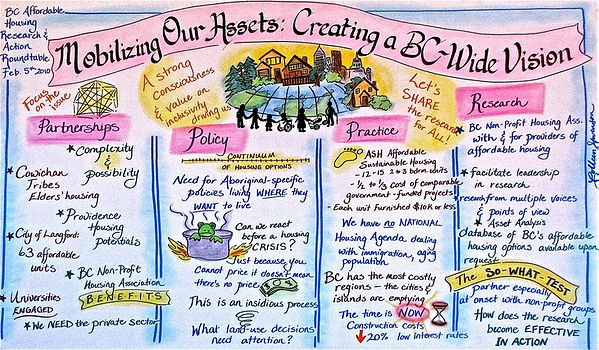 BC Affordable
Housing
Research &
Action
Roundtable
Feb. 5th 2010
Mobilizing Our Assets: Creating a BC-Wide Vision
Focus
on the
issue
A strong
consciousness
& value on
inclusivity
driving us
Let's
SHARE
the research
for ALL!
Partnerships
Complexity
&
possibility
Cowichan
Tribes
Elders' housing
Providence
Housing
potentials
City of Langford:
63 affordable
units
BC Non-Profit
Housing Association
BENEFITS
Universities
ENGAGED
We NEED the private sector
Policy
CONTINUUM
OF HOUSING OPTIONS
Need for Aboriginal-specific
policies living WHERE they
WANT to live
Can we react
before a housing
CRISIS?
Just because you
cannot price it doesn't mean
there's no price
This is an insidious process
What land-use decisions
need attention?
Practice
ASH Affordable
Sustainable Housing
- 12-15 2 & 3 bdrm units
- 1/2 to 1/3 cost of comparable
government-funded projects
- Each unit furnished $10K or less
We have no NATIONAL
Housing Agenda dealing
with immigration, aging
population
BC has the most costly
regions - the cities &
islands are emptying
The time is NOW
Construction costs
20% low interest rates
Research
BC Non-Profit Housing Ass.
with & for providers of
affordable housing
Facilitate leadership
in research
research from multiple voices
& points of view
Asset Analysis
database of BC's affordable
housing options available upon
request
The SO-WHAT-TEST
partner especially
at onset with non-profit groups
How does the research
become EFFECTIVE
IN ACTION